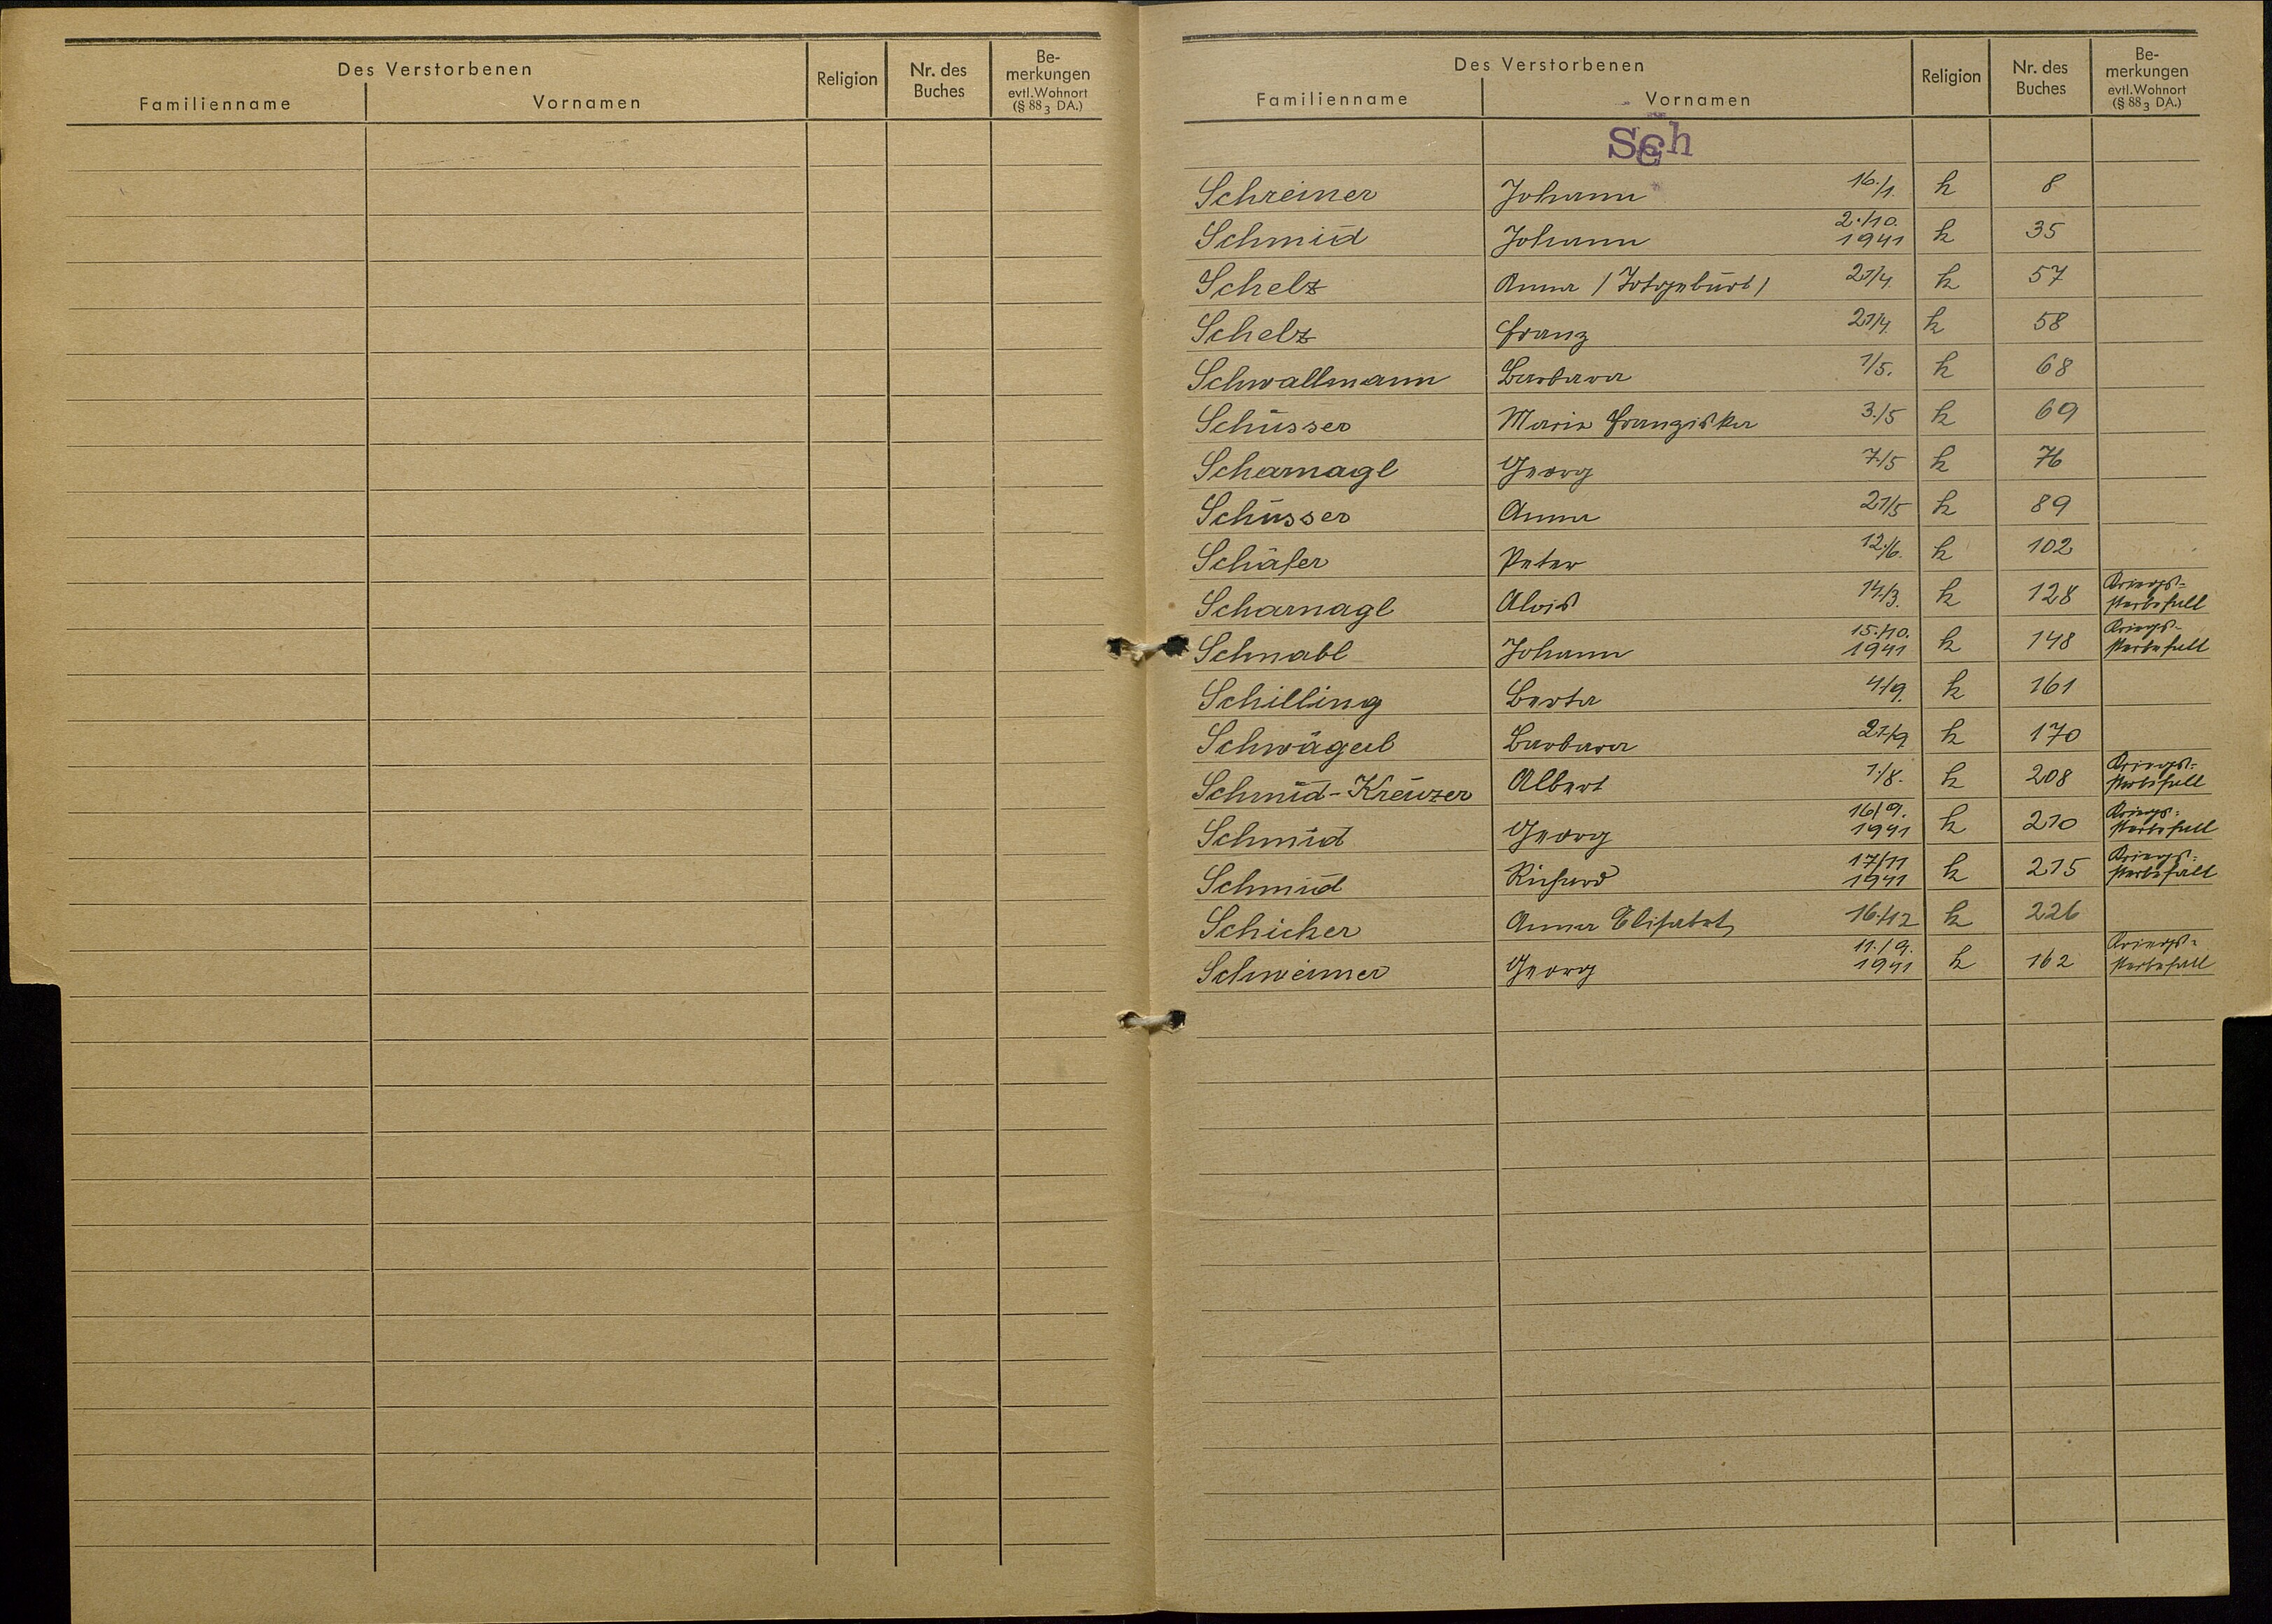 Des Verstorbenen
Familienname Vornamen Religion Nr. des Buches Be-merkungen evtl. Wohnort (§ 88 3 DA.)
Des Verstorbenen
Familienname Vornamen Religion Nr. des Buches Be-merkungen evtl. Wohnort (§ 88 3 DA.)
Sch
Schreiner Johann 16./1. k 8
Schmid Johann 2./10. 1941 k 35
Schelz Anna / Totgeburt / 21/4. k 57
Schelz Franz 21/4. k 58
Schwallmann Barbara 1/5. k 68
Schusser Maria Franziska 3./5 k 69
Scharnagl Georg 7./5 k 76
Schusser Anna 21/5 k 89
Schäfer Peter 12./6. k 102
Scharnagl Alois 14./3. k 128 Kriegs-sterbefall
Schnabl Johann 15./10. 1941 k 148 Kriegs-sterbefall
Schilling Berta 4/9. k 161
Schwägerl Barbara 21/9 k 170
Schmid-Kreuzer Albert 1./8. k 208 Kriegs-sterbefall
Schmid Georg 16/9. 1941 k 210 Kriegs-sterbefall
Schmid Richard 17/11 1941 k 215 Kriegs-sterbefall
Schicker Anna Elisabet 16./12 k 226
Schweimer Georg 11./9. 1941 k 162 Kriegs-sterbefall